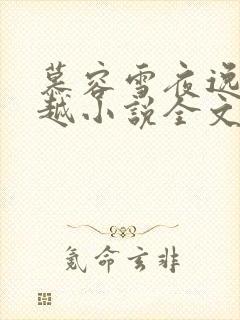 慕容雪夜逸
越小说全文
氪命玄非